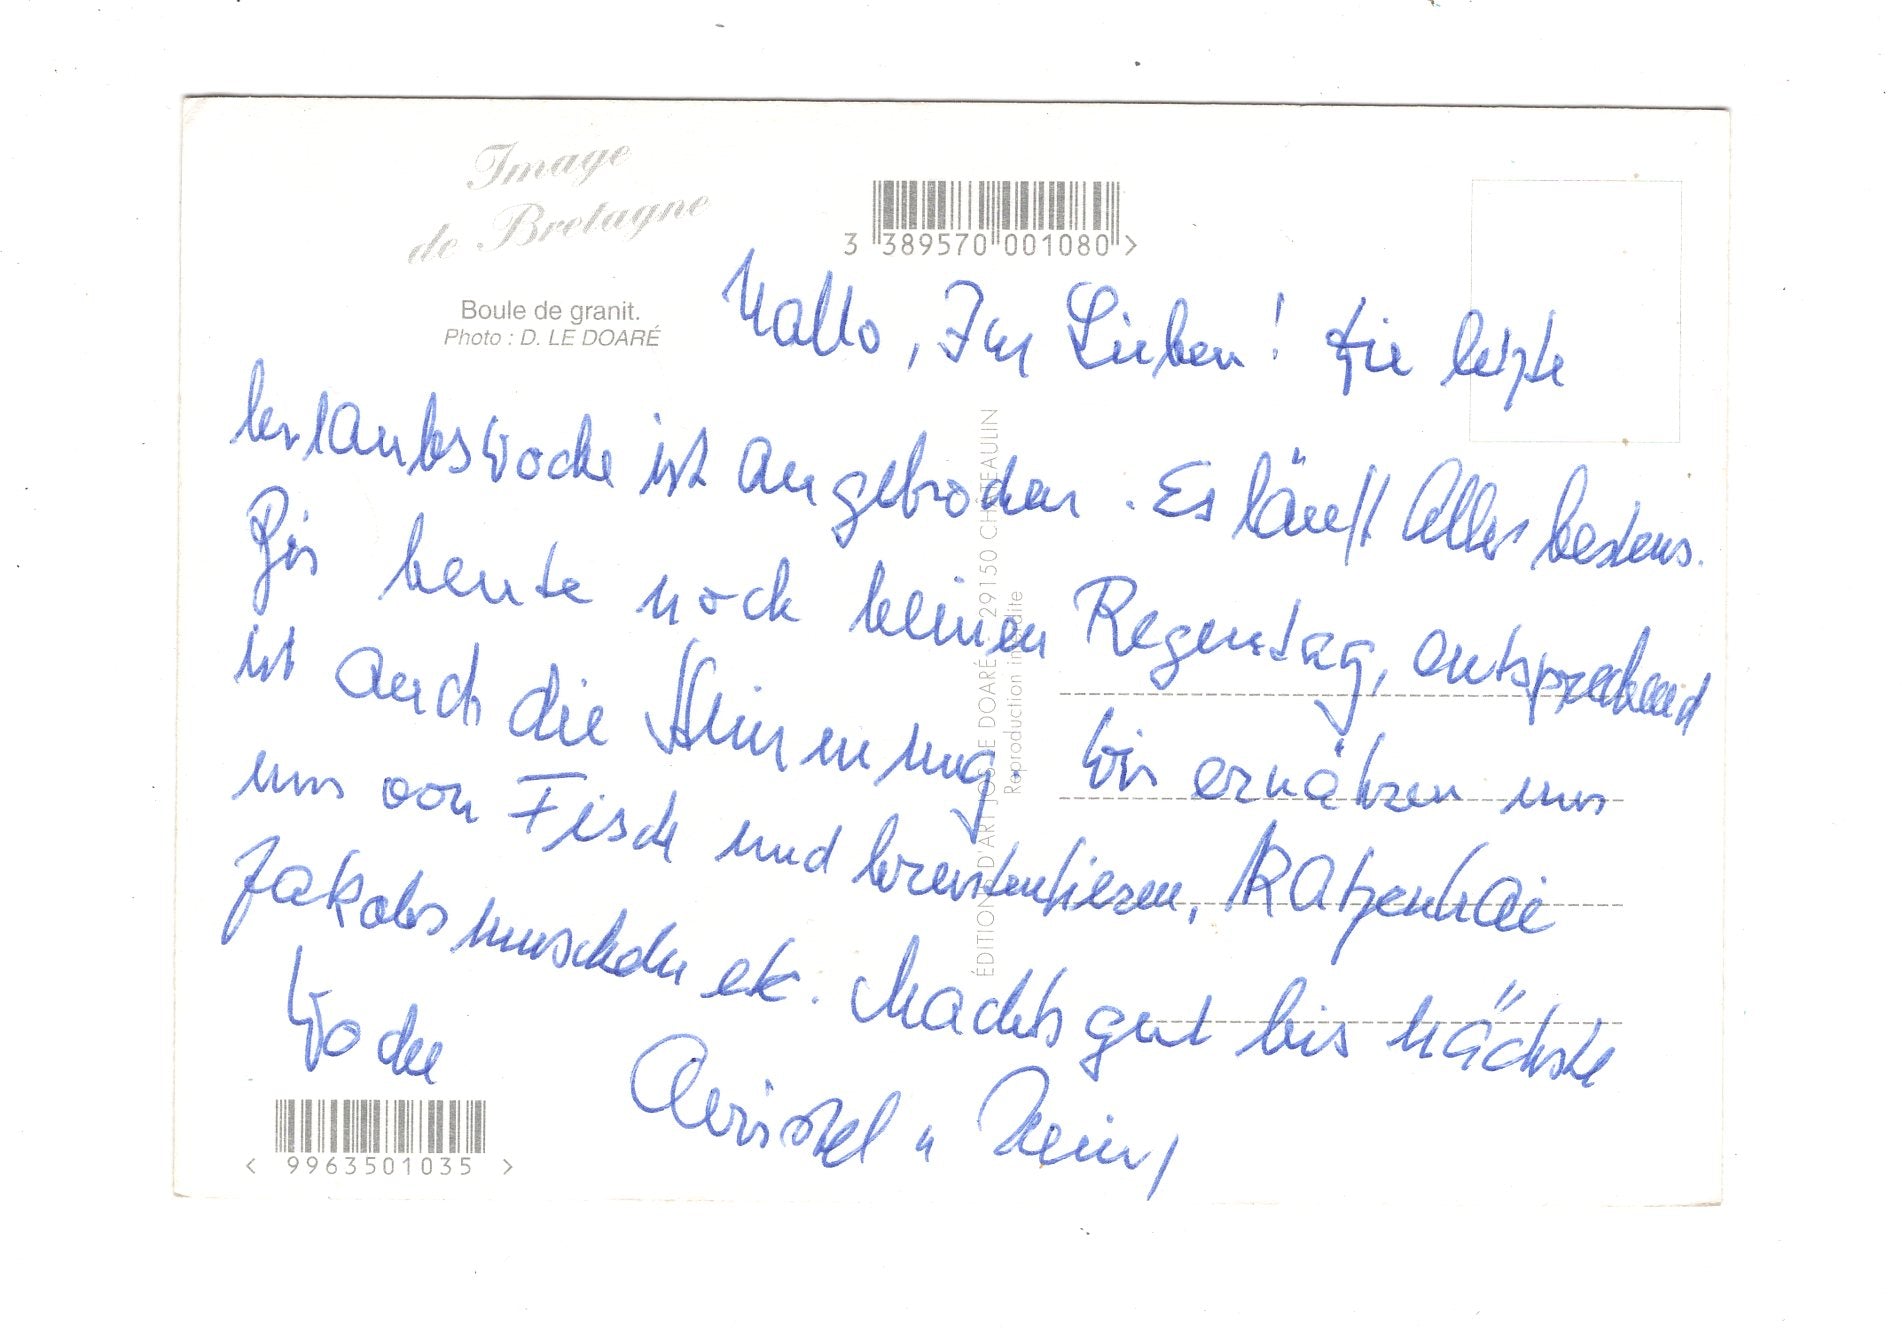 Image
de Bretagne
3 389570 001080 >
Boule de granit.
Photo : D. LE DOARÉ
Hallo, Ihr Lieben! Die letzte
Urlaubswoche ist angebrochen. Es läuft Alles bestens.
Bis heute noch keinen Regentag, entsprechend
ist auch die Stimmung. Wir ernähren uns
uns von Fisch und Krustentieren, Katzenhai
Jakobsmuscheln etc. Machts gut bis nächste
Woche
Christel u Heinz
ÉDITIONS D'ART JOS LE DOARÉ - 29150 CHÂTEAULIN
Reproduction interdite
< 9963501035 >